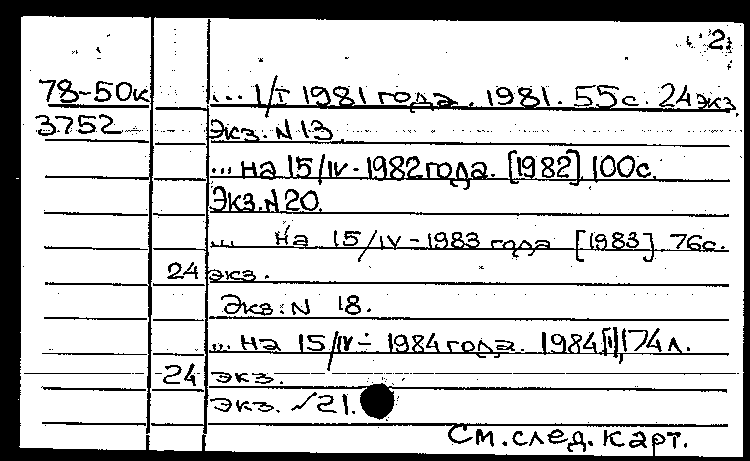 2
78-50к ... 1/I 1981 года. 1981. 55 с. 24 экз.
3752 Экз. N 13
... на 15/IV - 1982 года. [1982] 100с.
Экз. N 20.
... на 15/IV - 1983 года [1983]. 76с.
24 экз.
Экз. N 18.
... на 15/IV - 1984 года. 1984 [1], 174 л.
24 экз.
экз. N 21.
См. след. карт.